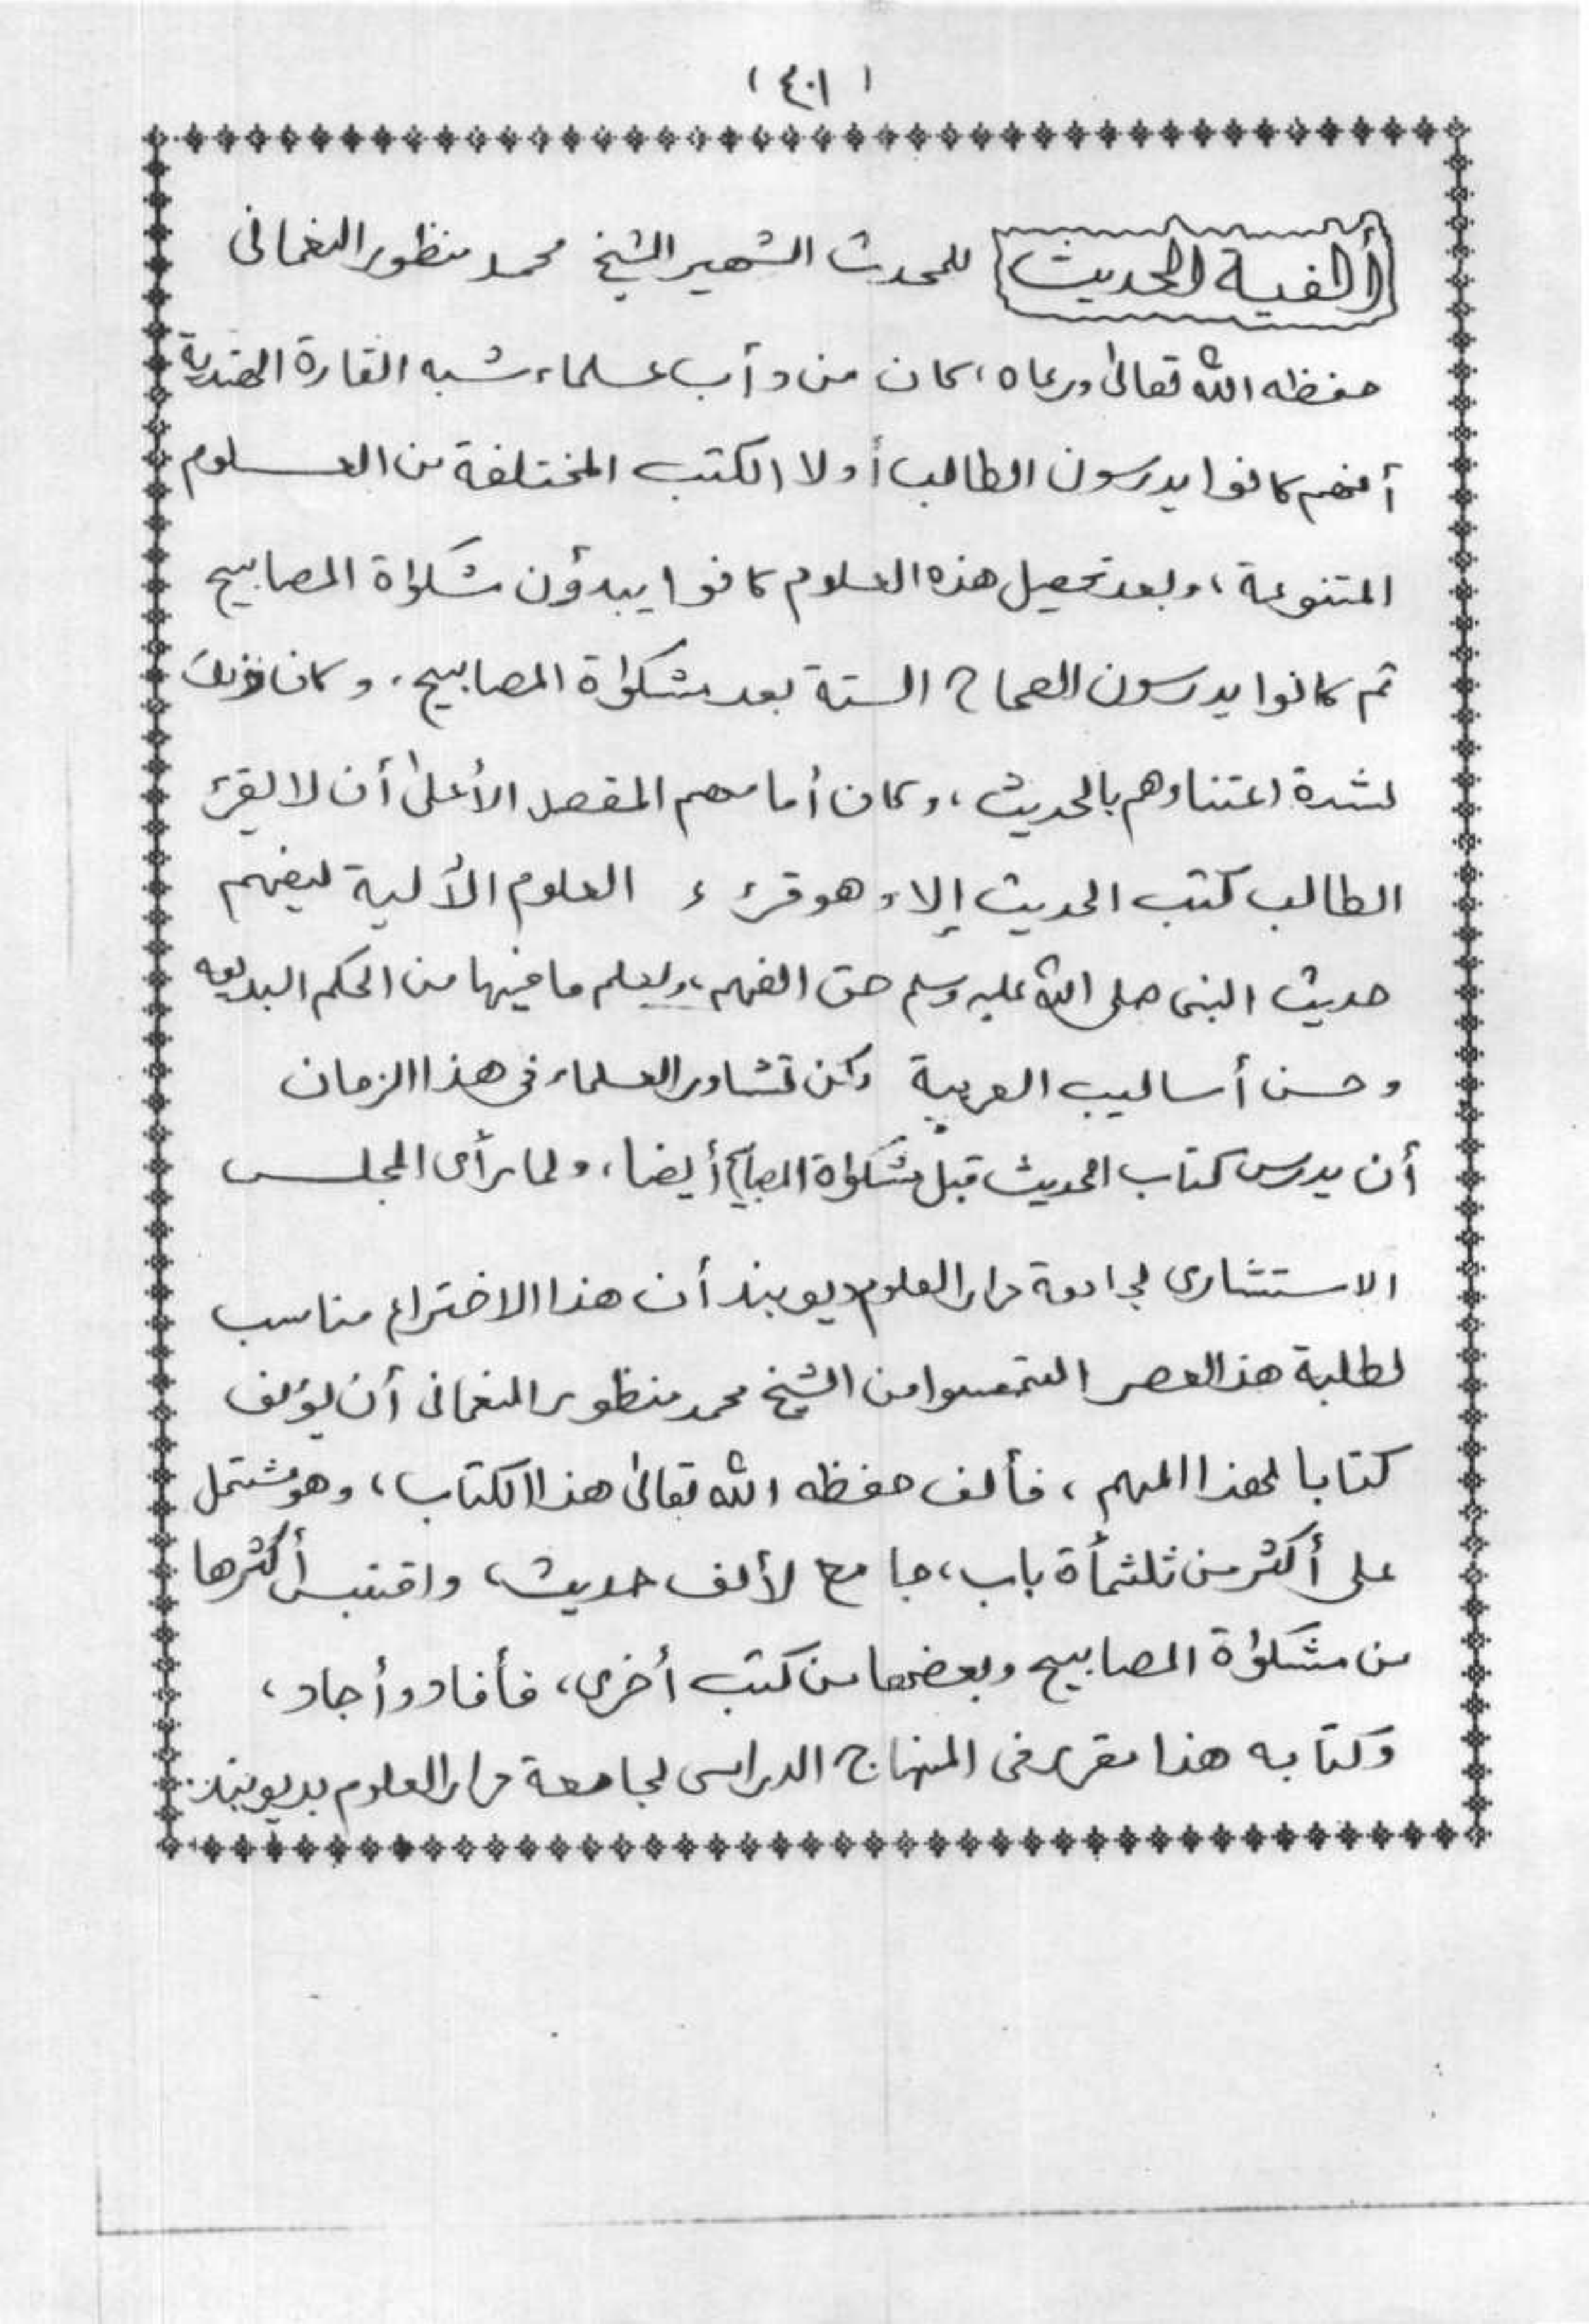 (٤٠١)
ألفية الحديث للمحدث الشهير الشيخ محمد منظور النعمانى
حفظه الله تعالى ورعاه، كان من دأب علماء شبه القارة الهندية
أنهم كانوا يدرسون الطالب أولا الكتب المختلفة من العلوم
المتنوعة، وبعد تحصيل هذه العلوم كانوا يبدؤن مشكواة المصابيح
ثم كانوا يدرسون الصحاح الستة بعد مشكواة المصابيح، وكان ذلك
لشدة اعتناوهم بالحديث، وكان أمامهم المقصد الأعلى أن لا يقرئ
الطالب كتب الحديث إلا وهو قرئ العلوم الألية ليفهم
حديث النبى صلى الله عليه وسلم حق الفهم، وليعلم ما فيها من الحكم البديعه
وحسن أساليب العربية ولكن تشاور العلماء فى هذا الزمان
أن يدرس كتاب الحديث قبل مشكواة المصابيح أيضا، ولما رأى المجلس
الاستشارى لجامعة دار العلوم ديوبند أن هذا الاختراع مناسب
لطلبة هذا العصر التمسوا من الشيخ محمد منظور النعمانى أن يؤلف
كتابا لهذا المهم، فألف حفظه الله تعالى هذا الكتاب، وهو مشتمل
على أكثر من ثلثمأة باب، جامع لألف حديث، واقتبس أكثرها
من مشكواة المصابيح وبعضها من كتب أخرى، فأفاد وأجاد،
وكتابه هذا مقرر فى المنهاج الدراسى لجامعة دار العلوم بديوبند.